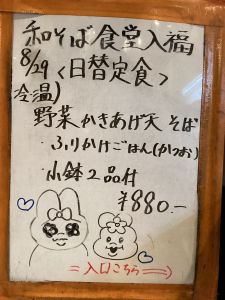 和そば食堂入福
8/29 <日替定食>
冷・温)
野菜かきあげ天そば
・ふりかけごはん(かつお)
・小鉢2品付
¥880.-
=入口こちら⇒